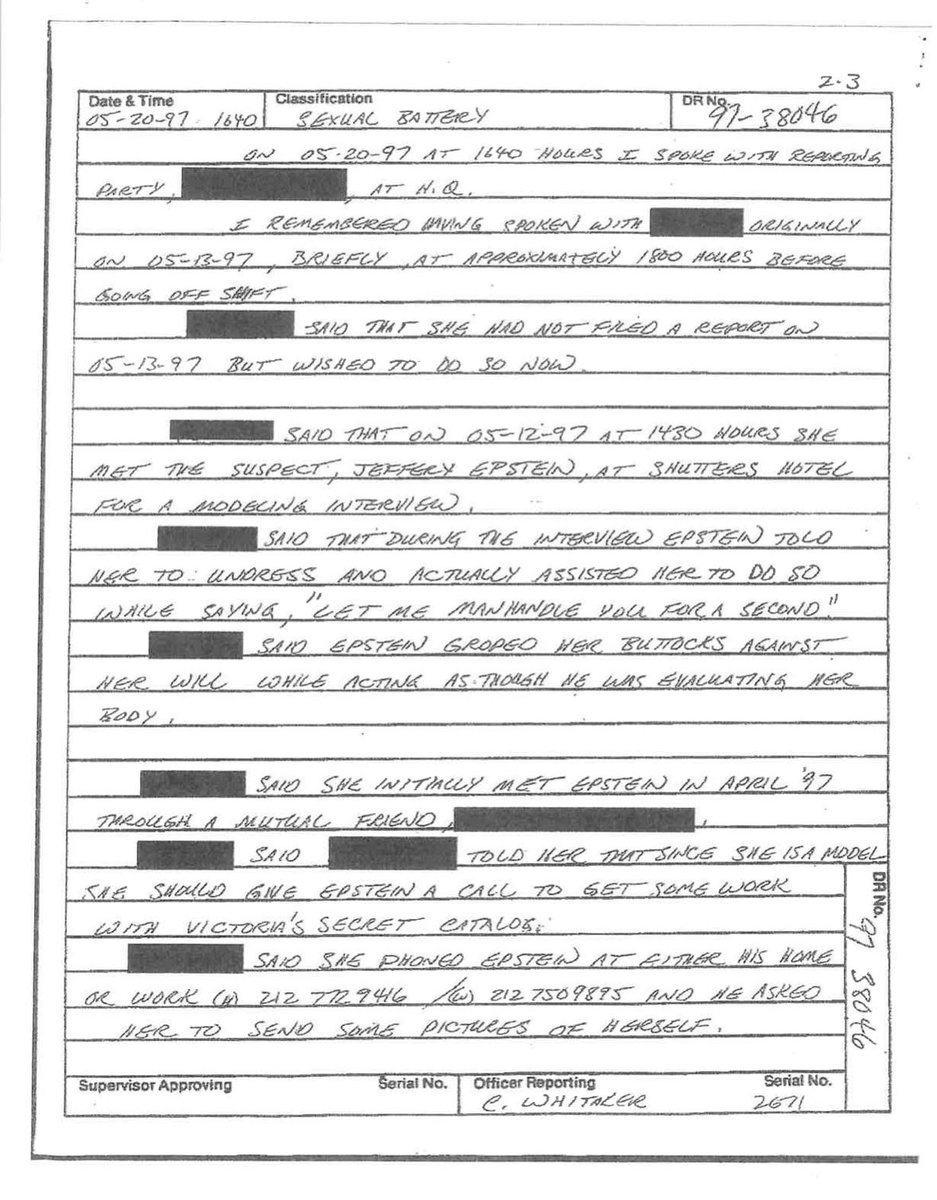 2-3
Date & Time Classification DR No.
05-20-97 1640 SEXUAL BATTERY 97-38046
ON 05-20-97 AT 1640 HOURS I SPOKE WITH REPORTING
PARTY, , AT H.Q.
I REMEMBERED HAVING SPOKEN WITH ORIGINALLY
ON 05-13-97, BRIEFLY, AT APPROXIMATELY 1800 HOURS BEFORE
GOING OFF SHIFT.
SAID THAT SHE HAD NOT FILED A REPORT ON
05-13-97 BUT WISHED TO DO SO NOW.
SAID THAT ON 05-12-97 AT 1430 HOURS SHE
MET THE SUSPECT, JEFFERY EPSTEIN, AT SHUTTERS HOTEL
FOR A MODELING INTERVIEW.
SAID THAT DURING THE INTERVIEW EPSTEIN TOLD
HER TO UNDRESS AND ACTUALLY ASSISTED HER TO DO SO
WHILE SAYING, "LET ME MANHANDLE YOU FOR A SECOND"
SAID EPSTEIN GROPED HER BUTTOCKS AGAINST
HER WILL WHILE ACTING AS THOUGH HE WAS EVALUATING HER
BODY.
SAID SHE INITIALLY MET EPSTEIN IN APRIL '97
THROUGH A MUTUAL FRIEND, .
SAID TOLD HER THAT SINCE SHE IS A MODEL
SHE SHOULD GIVE EPSTEIN A CALL TO GET SOME WORK
WITH VICTORIA'S SECRET CATALOG.
SAID SHE PHONED EPSTEIN AT EITHER HIS HOME
OR WORK (H) 212 772 9416 /(W) 212 7509895 AND HE ASKED
HER TO SEND SOME PICTURES OF HERSELF.
DR No. 97 38046
Supervisor Approving Serial No. Officer Reporting Serial No.
C. WHITAKER 2671